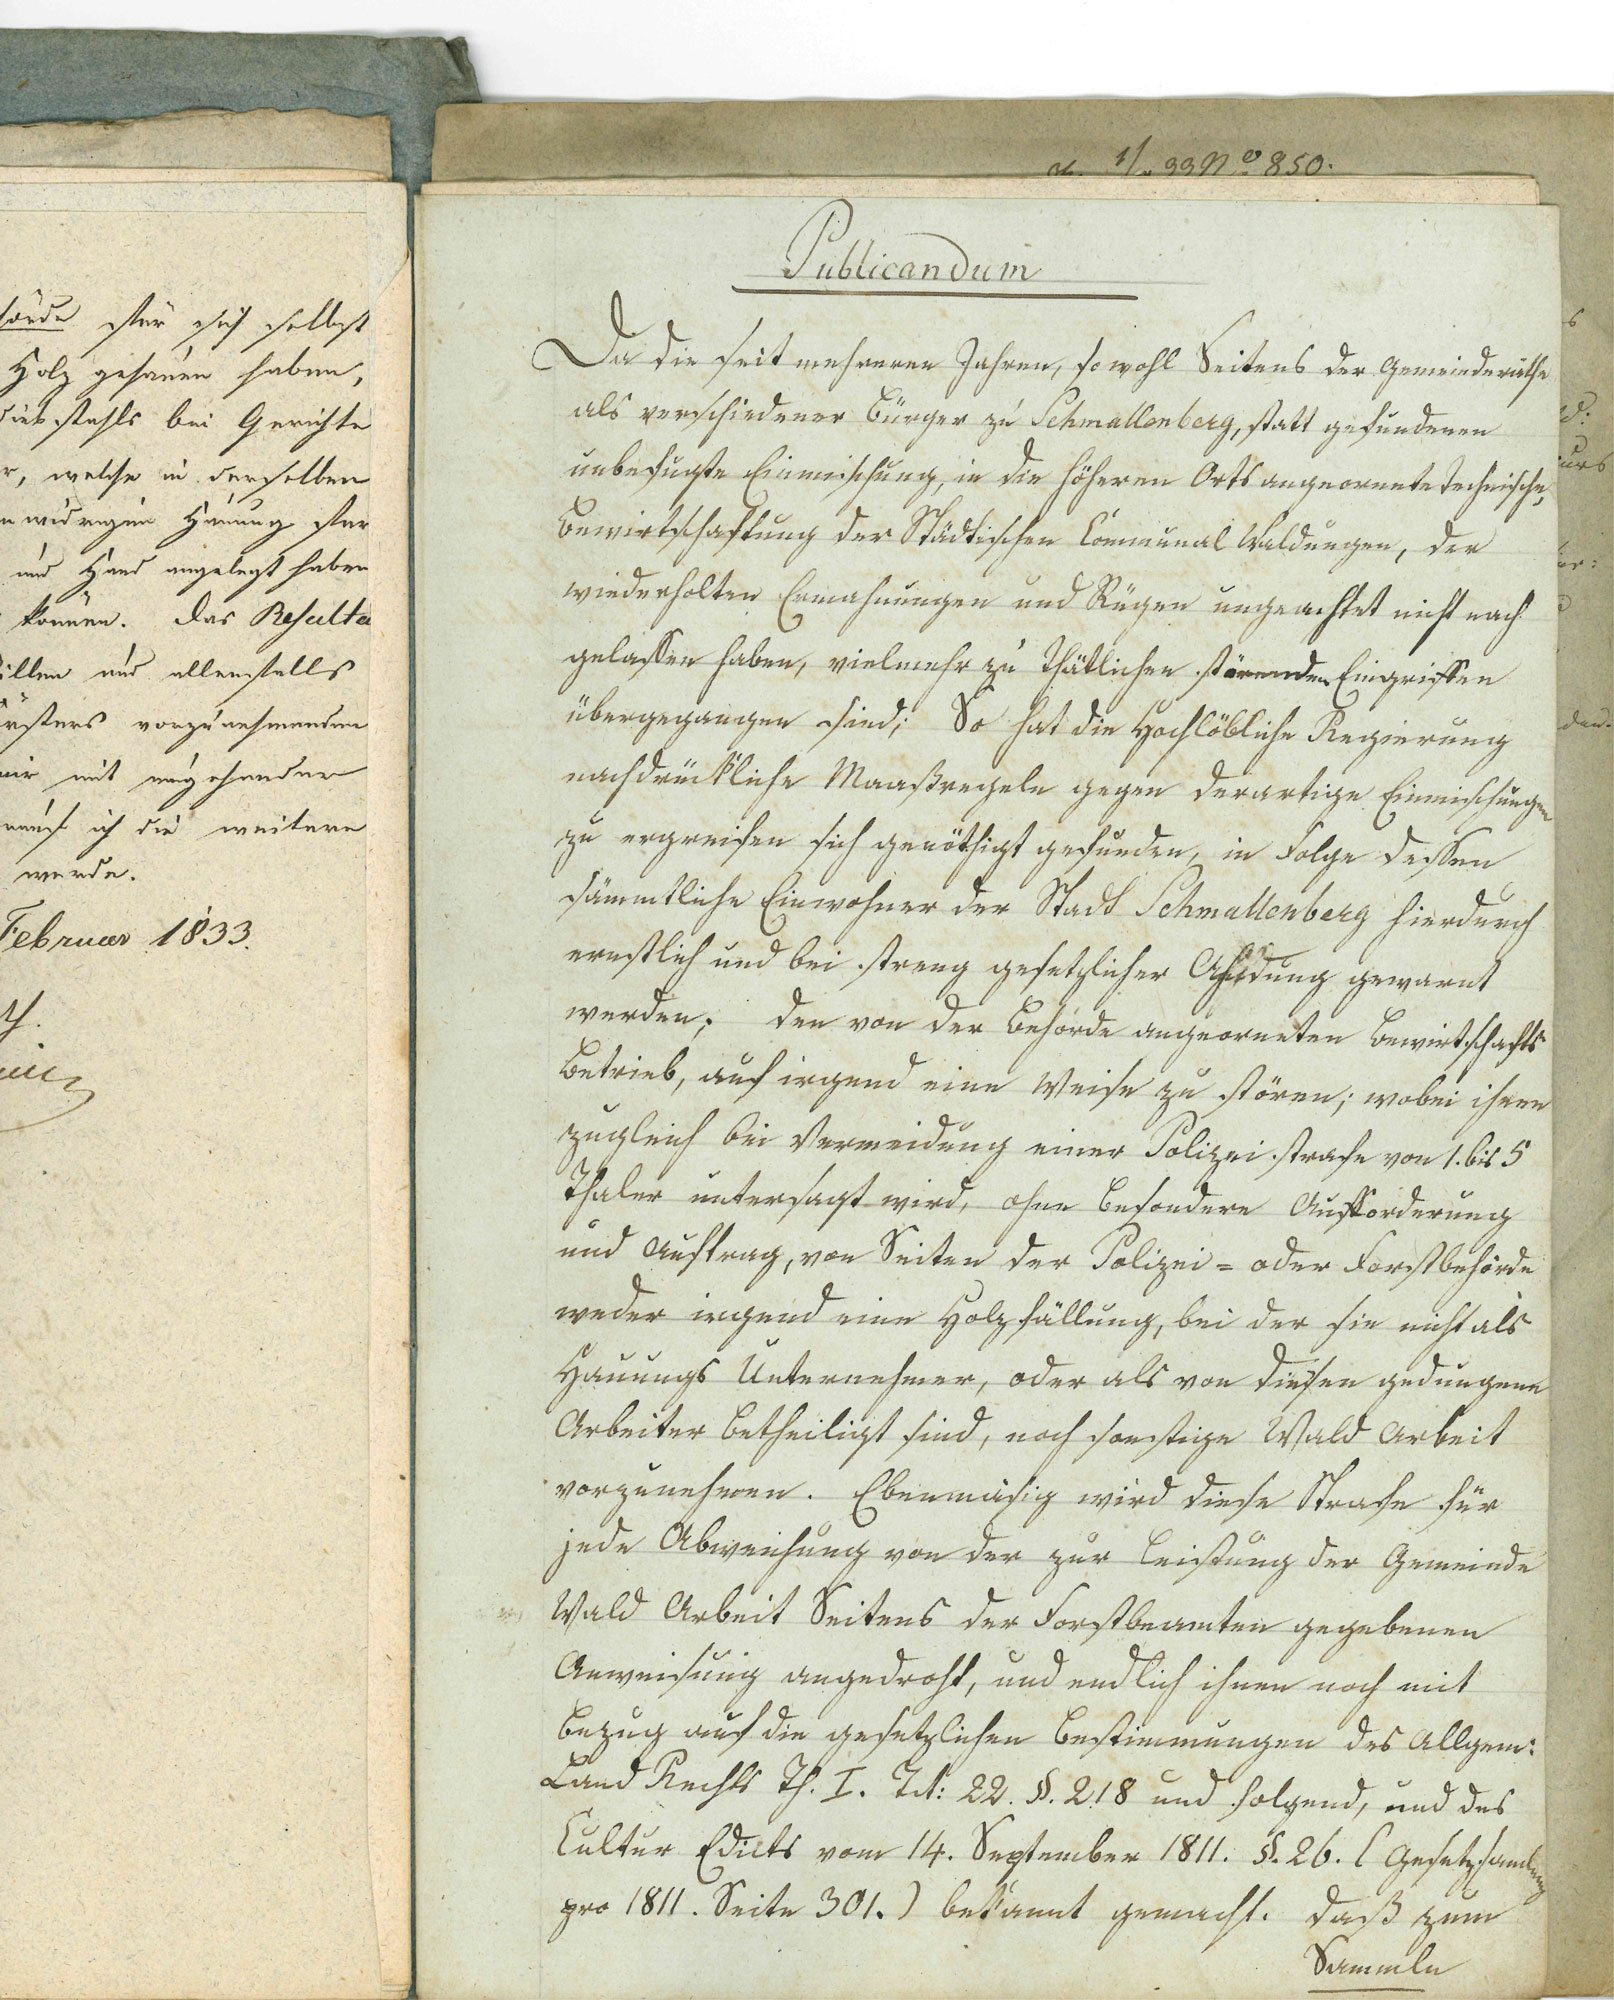 örde für sich selbst
Holz gehauen haben,
diebstahls bei Gerichte
r, welche in derselben
nwidrigen Hauung
und Hand angelegt haben
können. Das Resulta
willen und allenfalls
örsters vorzunehmenden
mir mit
rauf ich die weitere
werde.
Februar 1833.
1/ 33 No 850.
Publicandum
Da die seit mehreren Jahren, so wohl Seitens der Gemeinderäthe
als verschiedener Bürger zu Schmallenberg, statt gefundenen
unbefugte Einmischung, in die höheren Orts angeornete technische,
Bewirtschaftung der Städtischen Communal Waldungen, der
wiederholten Ermahnungen und Rügen ungeachtet nicht nach
gelassen haben, vielmehr zu thätlichen störenden Eingriffen
übergegangen sind; So hat die Hochlöbliche Regierung
nachdrückliche Maaßregeln gegen derartige Einmischungen
zu ergreifen sich genöthigt gefunden, in Folge dessen
sämmtliche Einwohner der Stadt Schmallenberg hierdurch
ernstlich und bei streng gesetzlicher Ahndung gewarnt
werden; den von der Behörde angeorneten Bewirtschafts
Betrieb, auf irgend eine Weise zu stören; wobei ihnen
zugleich bei Vermeidung einer Polizei strafe von 1. bis 5
Thaler untersagt wird, ohne besondere Aufforderung
und Auftrag, von Seiten der Polizei = oder Forstbehörde
weder irgend eine Holzfällung, bei der sie nicht als
Hauungs Unternehmer, oder als von diesen gedungene
Arbeiter betheiligt sind, noch sonstige Wald Arbeit
vorzunehmen. Ebenmäsig wird diese Strafe für
jede Abweichung von der zur Leistung der Gemeinde
Wald Arbeit Seitens der Forstbeamten gegebenen
Anweisung angedroht, und endlich ihnen noch mit
Bezug auf die gesetzlichen Bestimmungen des Allgem:
Land Rechts Th. I. Tit: 22. §. 218 und folgend, und des
Cultur Edicts vom 14. September 1811. §. 26. ( Gesetzsamlung
pro 1811. Seite 301. ) bekannt gemacht. daß zum
Sammeln